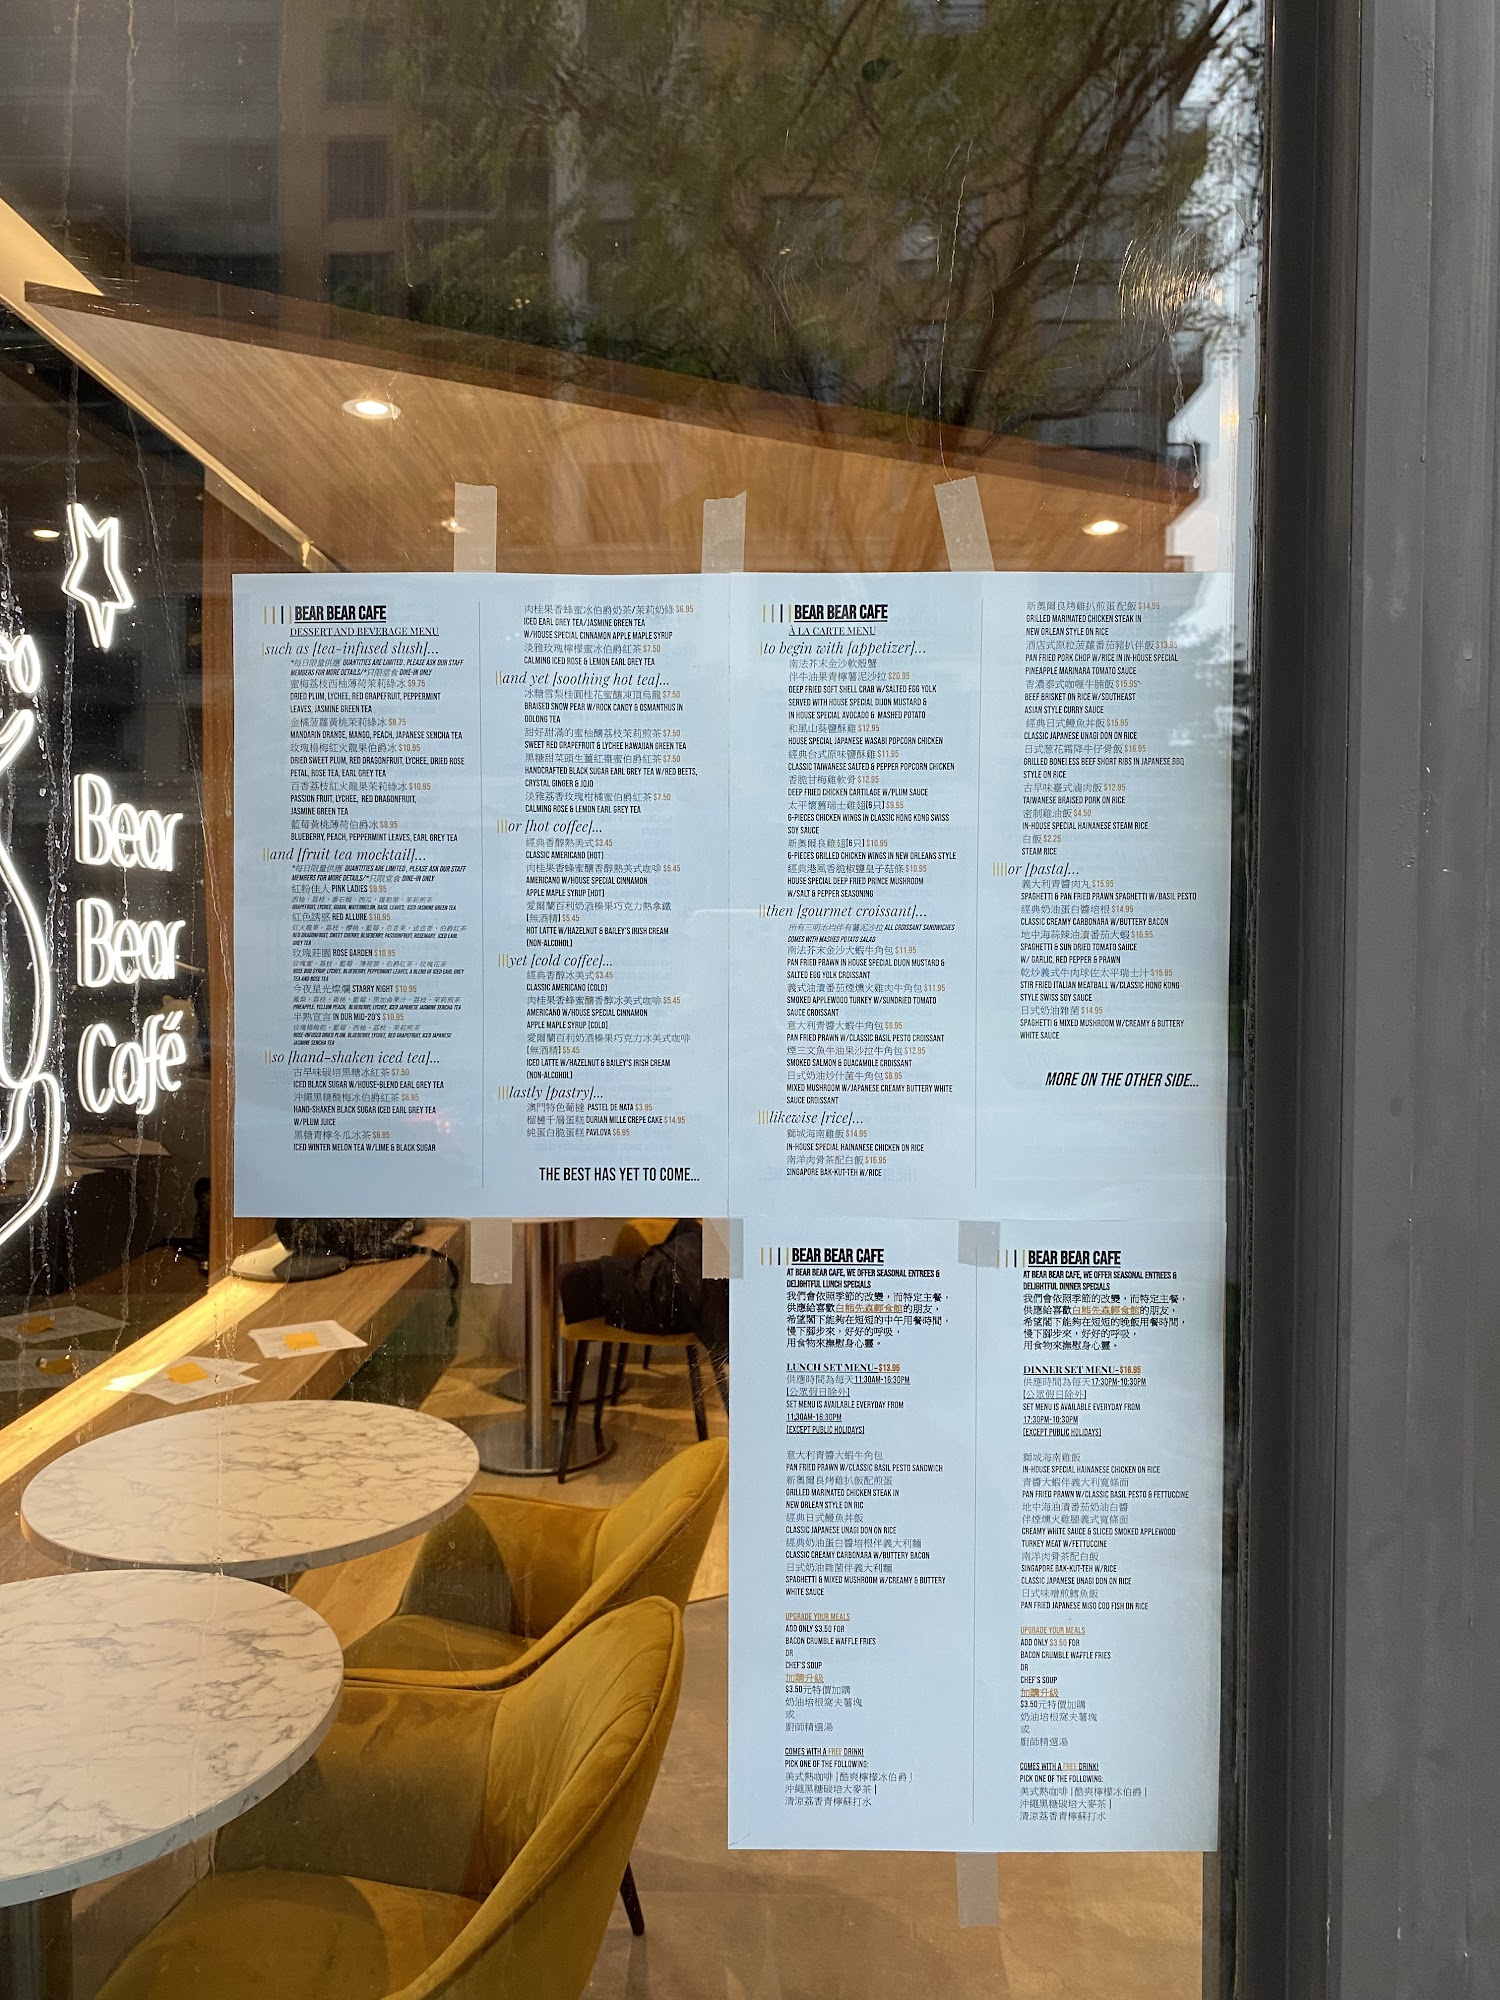 Bear
Bear
Café
BEAR BEAR CAFE
DESSERT AND BEVERAGE MENU
such as [tea-infused slush]...
*每日限量供應 QUANTITIES ARE LIMITED, PLEASE ASK OUR STAFF
MEMBERS FOR MORE DETAILS/*只限堂食 DINE-IN ONLY
蜜梅荔枝西柚薄荷茉莉綠冰 $9.75
DRIED PLUM, LYCHEE, RED GRAPEFRUIT, PEPPERMINT
LEAVES, JASMINE GREEN TEA
金橘菠蘿黃桃茉莉綠冰 $8.75
MANDARIN ORANGE, MANGO, PEACH, JAPANESE SENCHA TEA
玫瑰楊梅紅火龍果伯爵冰 $10.95
DRIED SWEET PLUM, RED DRAGONFRUIT, LYCHEE, DRIED ROSE
PETAL, ROSE TEA, EARL GREY TEA
百香荔枝紅火龍果茉莉綠冰 $10.95
PASSION FRUIT, LYCHEE, RED DRAGONFRUIT,
JASMINE GREEN TEA
藍莓黃桃薄荷伯爵冰 $8.95
BLUEBERRY, PEACH, PEPPERMINT LEAVES, EARL GREY TEA
and [fruit tea mocktail]...
*每日限量供應 QUANTITIES ARE LIMITED, PLEASE ASK OUR STAFF
MEMBERS FOR MORE DETAILS/*只限堂食 DINE-IN ONLY
紅粉佳人 PINK LADIES $9.95
GRAPEFRUIT, LYCHEE, GUAVA, WATERMELON, BASIL LEAVES, ICED JASMINE GREEN TEA
紅色誘惑 RED ALLURE $10.95
RED DRAGONFRUIT, SWEET CHERRY, BLUEBERRY, PASSIONFRUIT, ROSEMARY, ICED EARL
GREY TEA
玫瑰莊園 ROSE GARDEN $10.95
ROSE BUD SYRUP, LYCHEE, BLUEBERRY, PEPPERMINT LEAVES, A BLEND OF ICED EARL GREY
TEA AND ROSE TEA
今夜星光燦爛 STARRY NIGHT $10.95
PINEAPPLE, YELLOW PEACH, BLUEBERRY, LYCHEE, ICED JAPANESE JASMINE SENCHA TEA
半熟宣言 IN OUR MID-20'S $10.95
ROSE-INFUSED DRIED PLUM, BLUEBERRY, LYCHEE, RED GRAPEFRUIT, ICED JAPANESE
JASMINE SENCHA TEA
so [hand-shaken iced tea]...
古早味碳培黑糖冰紅茶 $7.50
ICED BLACK SUGAR W/HOUSE-BLEND EARL GREY TEA
沖繩黑糖酸梅冰伯爵紅茶 $6.95
HAND-SHAKEN BLACK SUGAR ICED EARL GREY TEA
W/PLUM JUICE
黑糖青檸冬瓜冰茶 $6.95
ICED WINTER MELON TEA W/LIME & BLACK SUGAR
肉桂果香蜂蜜冰伯爵奶茶/茉莉奶綠 $6.95
ICED EARL GREY TEA/JASMINE GREEN TEA
W/HOUSE SPECIAL CINNAMON APPLE MAPLE SYRUP
淡雅玫瑰檸檬蜜冰伯爵紅茶 $7.50
CALMING ICED ROSE & LEMON EARL GREY TEA
and yet [soothing hot tea]...
冰糖雪梨桂圓桂花蜜釀凍頂烏龍 $7.50
BRAISED SNOW PEAR W/ROCK CANDY & OSMANTHUS IN
OOLONG TEA
甜好甜滿的蜜柚釀荔枝茉莉煎茶 $7.50
SWEET RED GRAPEFRUIT & LYCHEE HAWAIIAN GREEN TEA
黑糖甜菜頭生薑紅棗蜜伯爵紅茶 $7.50
HANDCRAFTED BLACK SUGAR EARL GREY TEA W/RED BEETS,
CRYSTAL GINGER & JOJO
淡雅荔香玫瑰柑橘蜜伯爵紅茶 $7.50
CALMING ROSE & LEMON EARL GREY TEA
or [hot coffee]...
經典香醇熱美式 $3.45
CLASSIC AMERICANO (HOT)
肉桂果香蜂蜜釀香醇熱美式咖啡 $5.45
AMERICANO W/HOUSE SPECIAL CINNAMON
APPLE MAPLE SYRUP (HOT)
愛爾蘭百利奶酒榛果巧克力熱拿鐵
[無酒精] $5.45
HOT LATTE W/HAZELNUT & BAILEY'S IRISH CREAM
(NON-ALCOHOL)
yet [cold coffee]...
經典香醇冰美式 $3.45
CLASSIC AMERICANO (COLD)
肉桂果香蜂蜜釀香醇冰美式咖啡 $5.45
AMERICANO W/HOUSE SPECIAL CINNAMON
APPLE MAPLE SYRUP (COLD)
愛爾蘭百利奶酒榛果巧克力冰美式咖啡
[無酒精] $5.45
ICED LATTE W/HAZELNUT & BAILEY'S IRISH CREAM
(NON-ALCOHOL)
lastly [pastry]...
澳門特色葡撻 PASTEL DE NATA $3.95
榴槤千層蛋糕 DURIAN MILLE CREPE CAKE $14.95
純蛋白脆蛋糕 PAVLOVA $6.95
THE BEST HAS YET TO COME...
BEAR BEAR CAFE
À LA CARTE MENU
to begin with [appetizer]...
南法芥末金沙軟殼蟹
伴牛油果青檸薯泥沙拉 $20.95
DEEP FRIED SOFT SHELL CRAB W/SALTED EGG YOLK
SERVED WITH HOUSE SPECIAL DIJON MUSTARD &
IN HOUSE SPECIAL AVOCADO & MASHED POTATO
和風山葵鹽酥雞 $12.95
HOUSE SPECIAL JAPANESE WASABI POPCORN CHICKEN
經典台式原味鹽酥雞 $11.95
CLASSIC TAIWANESE SALTED & PEPPER POPCORN CHICKEN
香脆甘梅雞軟骨 $12.95
DEEP FRIED CHICKEN CARTILAGE W/PLUM SAUCE
太平懷舊瑞士雞翅[6只] $9.95
6-PIECES CHICKEN WINGS IN CLASSIC HONG KONG SWISS
SOY SAUCE
新奧爾良雞翅[6只] $10.95
6-PIECES GRILLED CHICKEN WINGS IN NEW ORLEANS STYLE
經典港風香脆椒鹽皇子菇條 $10.95
HOUSE SPECIAL DEEP FRIED PRINCE MUSHROOM
W/SALT & PEPPER SEASONING
then [gourmet croissant]...
所有三明治均伴有薯泥沙拉 ALL CROISSANT SANDWICHES
COMES WITH MASHED POTATO SALAD
南法芥末金沙大蝦牛角包 $11.95
PAN FRIED PRAWN IN HOUSE SPECIAL DIJON MUSTARD &
SALTED EGG YOLK CROISSANT
義式油漬番茄煙燻火雞肉牛角包 $11.95
SMOKED APPLEWOOD TURKEY W/SUNDRIED TOMATO
SAUCE CROISSANT
意大利青醬大蝦牛角包 $9.95
PAN FRIED PRAWN W/CLASSIC BASIL PESTO CROISSANT
煙三文魚牛油果沙拉牛角包 $12.95
SMOKED SALMON & GUACAMOLE CROISSANT
日式奶油炒什菌牛角包 $8.95
MIXED MUSHROOM W/JAPANESE CREAMY BUTTERY WHITE
SAUCE CROISSANT
likewise [rice]...
獅城海南雞飯 $14.95
IN-HOUSE SPECIAL HAINANESE CHICKEN ON RICE
南洋肉骨茶配白飯 $16.95
SINGAPORE BAK-KUT-TEH W/RICE
新奧爾良烤雞扒煎蛋配飯 $14.95
GRILLED MARINATED CHICKEN STEAK IN
NEW ORLEAN STYLE ON RICE
酒店式原粒菠蘿番茄豬扒伴飯 $13.95
PAN FRIED PORK CHOP W/RICE IN IN-HOUSE SPECIAL
PINEAPPLE MARINARA TOMATO SAUCE
香濃泰式咖喱牛腩飯 $15.95
BEEF BRISKET ON RICE W/SOUTHEAST
ASIAN STYLE CURRY SAUCE
經典日式鰻魚丼飯 $15.95
CLASSIC JAPANESE UNAGI DON ON RICE
日式葱花霜降牛仔骨飯 $16.95
GRILLED BONELESS BEEF SHORT RIBS IN JAPANESE BBQ
STYLE ON RICE
古早味臺式滷肉飯 $12.95
TAIWANESE BRAISED PORK ON RICE
密制雞油飯 $4.50
IN-HOUSE SPECIAL HAINANESE STEAM RICE
白飯 $2.25
STEAM RICE
or [pasta]...
義大利青醬肉丸 $15.95
SPAGHETTI & PAN FRIED PRAWN SPAGHETTI W/BASIL PESTO
經典奶油蛋白醬培根 $14.95
CLASSIC CREAMY CARBONARA W/BUTTERY BACON
地中海蒜辣油漬番茄大蝦 $16.95
SPAGHETTI & SUN DRIED TOMATO SAUCE
W/ GARLIC, RED PEPPER & PRAWN
乾炒義式牛肉球佐太平瑞士汁 $15.95
STIR FRIED ITALIAN MEATBALL W/CLASSIC HONG KONG
STYLE SWISS SOY SAUCE
日式奶油雜菌 $14.95
SPAGHETTI & MIXED MUSHROOM W/CREAMY & BUTTERY
WHITE SAUCE
MORE ON THE OTHER SIDE...
BEAR BEAR CAFE
AT BEAR BEAR CAFE, WE OFFER SEASONAL ENTREES &
DELIGHTFUL LUNCH SPECIALS
我們會依照季節的改變，而特定主餐，
供應給喜歡白熊先森輕食館的朋友，
希望閣下能夠在短短的中午用餐時間，
慢下腳步來，好好的呼吸，
用食物來撫慰身心靈。
LUNCH SET MENU-$13.95
供應時間為每天11:30AM-16:30PM
[公眾假日除外]
SET MENU IS AVAILABLE EVERYDAY FROM
11:30AM-16:30PM
[EXCEPT PUBLIC HOLIDAYS]
意大利青醬大蝦牛角包
PAN FRIED PRAWN W/CLASSIC BASIL PESTO SANDWICH
新奧爾良烤雞扒飯配煎蛋
GRILLED MARINATED CHICKEN STEAK IN
NEW ORLEAN STYLE ON RIC
經典日式鰻魚丼飯
CLASSIC JAPANESE UNAGI DON ON RICE
經典奶油蛋白醬培根伴義大利麵
CLASSIC CREAMY CARBONARA W/BUTTERY BACON
日式奶油雜菌伴義大利麵
SPAGHETTI & MIXED MUSHROOM W/CREAMY & BUTTERY
WHITE SAUCE
UPGRADE YOUR MEALS
ADD ONLY $3.50 FOR
BACON CRUMBLE WAFFLE FRIES
OR
CHEF'S SOUP
加購升級
$3.50元特價加購
奶油培根窩夫薯塊
或
廚師精選湯
COMES WITH A FREE DRINK!
PICK ONE OF THE FOLLOWING:
美式熱咖啡 | 酷爽檸檬冰伯爵 |
沖繩黑糖碳培大麥茶 |
清涼荔香青檸蘇打水
BEAR BEAR CAFE
AT BEAR BEAR CAFE, WE OFFER SEASONAL ENTREES &
DELIGHTFUL DINNER SPECIALS
我們會依照季節的改變，而特定主餐，
供應給喜歡白熊先森輕食館的朋友，
希望閣下能夠在短短的晚飯用餐時間，
慢下腳步來，好好的呼吸，
用食物來撫慰身心靈。
DINNER SET MENU-$16.95
供應時間為每天17:30PM-10:30PM
[公眾假日除外]
SET MENU IS AVAILABLE EVERYDAY FROM
17:30PM-10:30PM
[EXCEPT PUBLIC HOLIDAYS]
獅城海南雞飯
IN-HOUSE SPECIAL HAINANESE CHICKEN ON RICE
青醬大蝦伴義大利寬條面
PAN FRIED PRAWN W/CLASSIC BASIL PESTO & FETTUCCINE
地中海油漬番茄奶油白醬
伴煙燻火雞腿義式寬條面
CREAMY WHITE SAUCE & SLICED SMOKED APPLEWOOD
TURKEY MEAT W/FETTUCCINE
南洋肉骨茶配白飯
SINGAPORE BAK-KUT-TEH W/RICE
CLASSIC JAPANESE UNAGI DON ON RICE
日式味噌煎鱈魚飯
PAN FRIED JAPANESE MISO COD FISH ON RICE
UPGRADE YOUR MEALS
ADD ONLY $3.50 FOR
BACON CRUMBLE WAFFLE FRIES
OR
CHEF'S SOUP
加購升級
$3.50元特價加購
奶油培根窩夫薯塊
或
廚師精選湯
COMES WITH A FREE DRINK!
PICK ONE OF THE FOLLOWING:
美式熱咖啡 | 酷爽檸檬冰伯爵 |
沖繩黑糖碳培大麥茶 |
清涼荔香青檸蘇打水